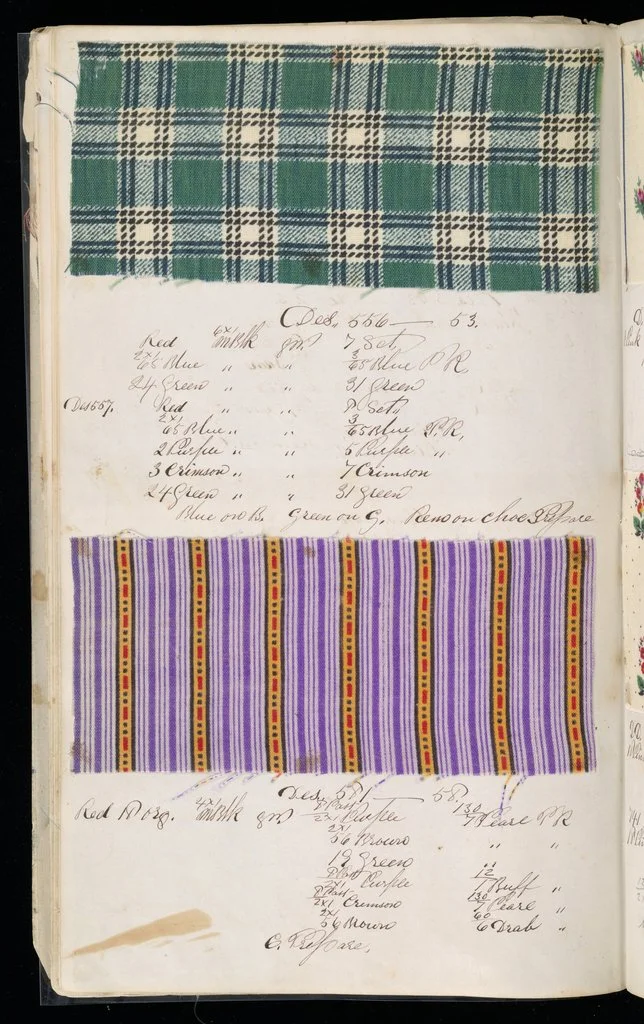 Des. 556 — 53.
Red 6x1 Blk gm 7 Set,
2x1 65 Blue " " 3/65 Blue P.K,
24 Green " " 31 Green
Des 557. Red " " Set,
2x1 65 Blue " " 3/65 Blue P.K,
2 Purple " " 5 Purple "
3 Crimson " " 7 Crimson
24 Green " " 31 Green
Blue on B. Green on G. Prepare
Des. — 58.
Red org. 4x1 Blk gm 2x1 Purple 130/7 Pearl P.K
2x1 56 Brown " "
19 Green
2x1 Purple 12/7 Buff "
2x1 Crimson 130/7 Pearl "
2x1 56 Brown 60/6 Drab "
C. Prepare.